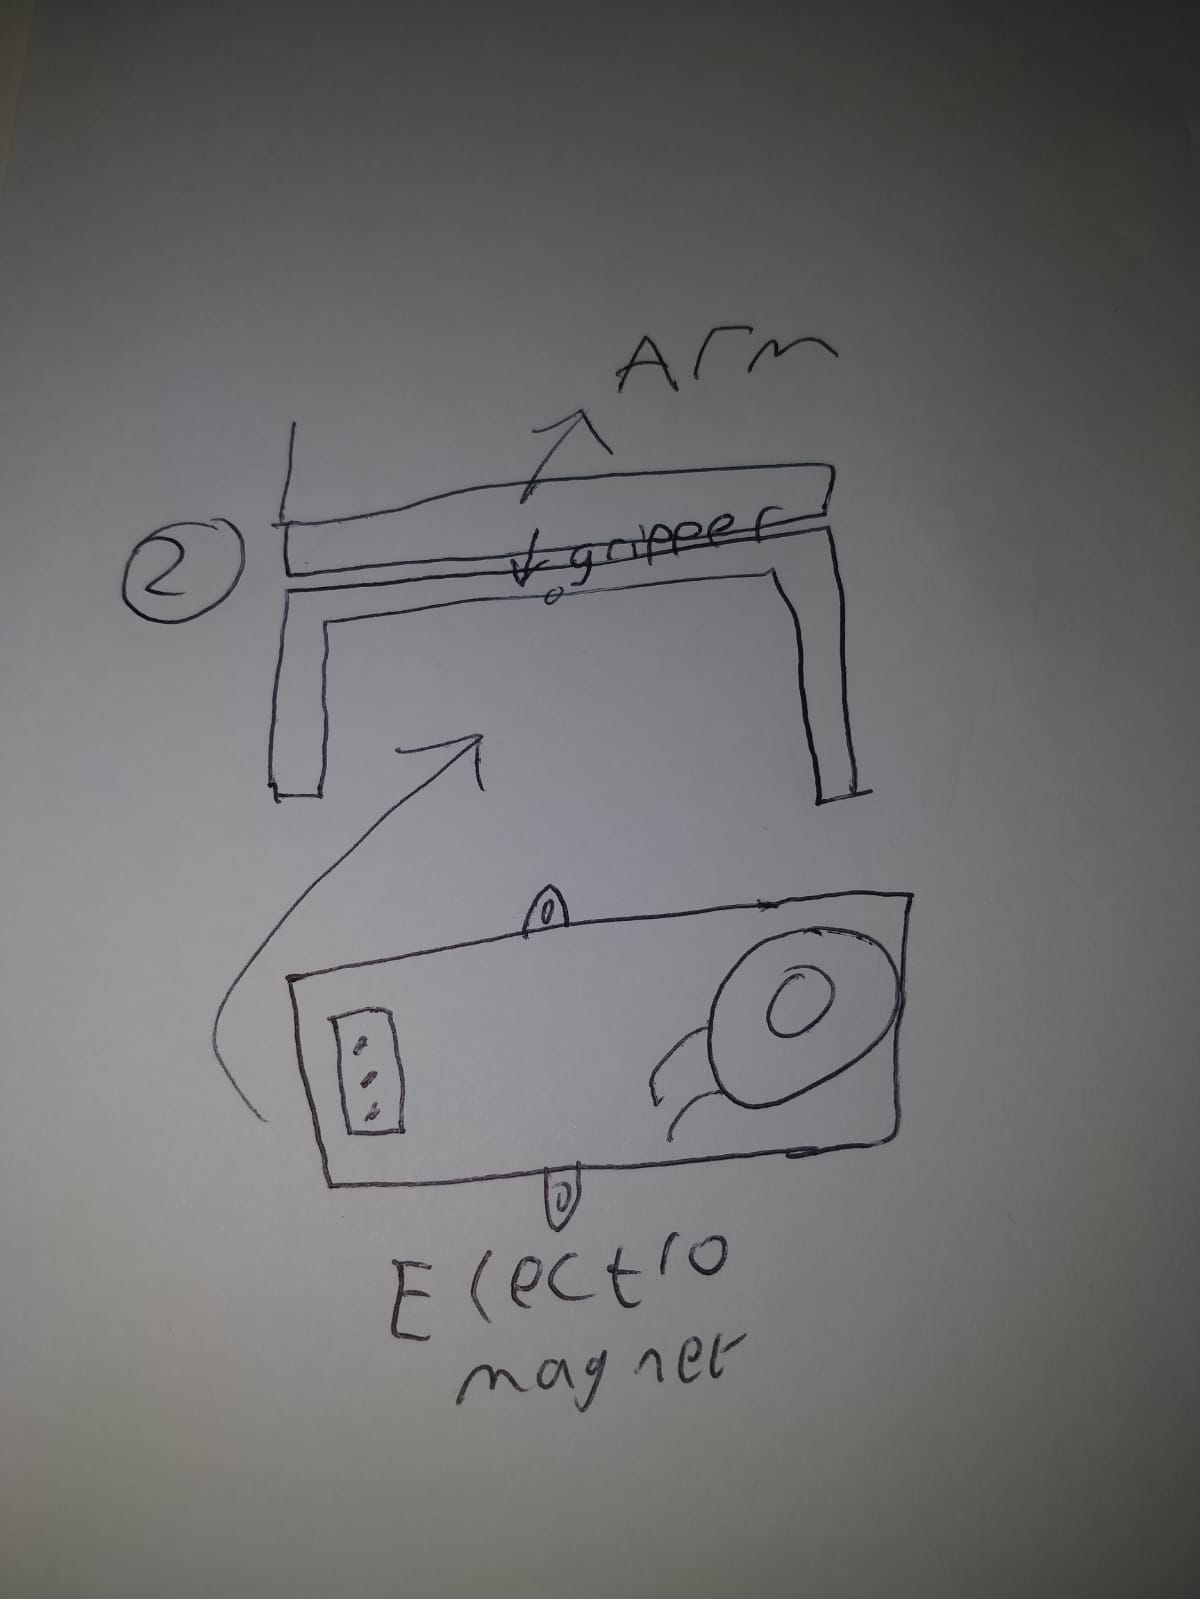 Arm
gripper
2
Electro
magnet